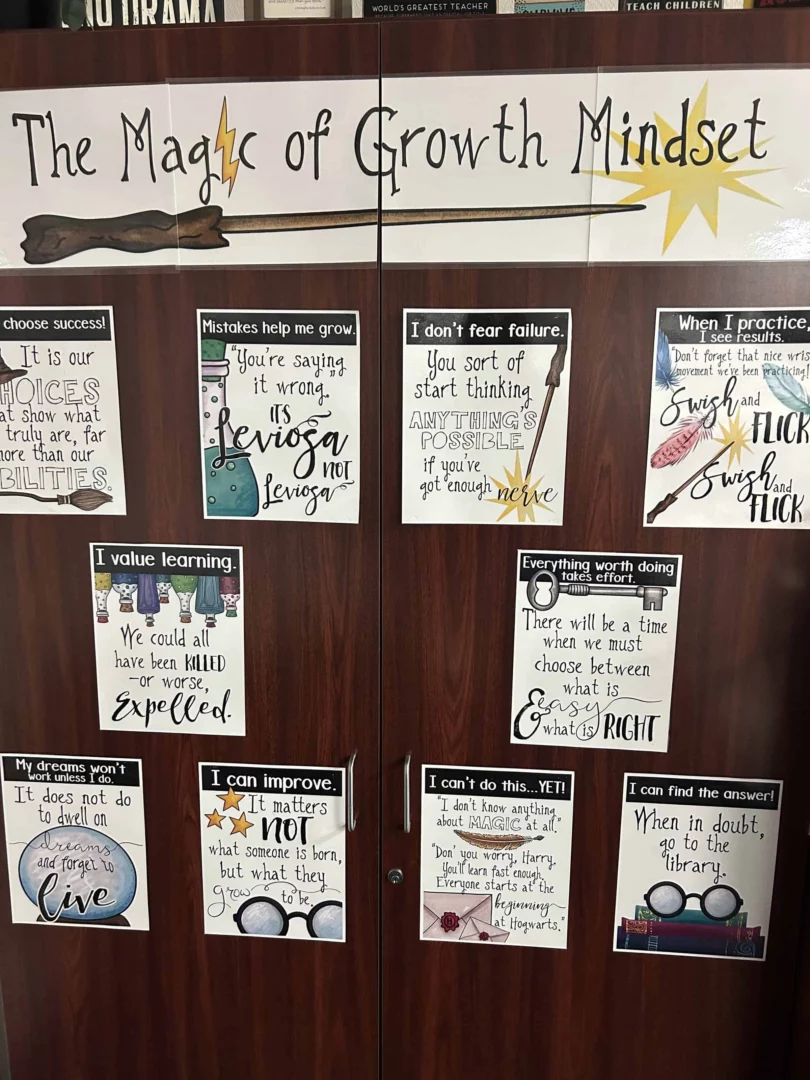 NO DRAMA
WORLD'S GREATEST TEACHER
TEACH CHILDREN
The Magic of Growth Mindset
choose success!
It is our
HOICES
at show what
truly are, far
ore than our
BILITIES.
Mistakes help me grow.
"You're saying
it wrong."
ITS
Leviosa
NOT
Leviosa
I don't fear failure.
You sort of
start thinking
ANYTHING'S
POSSIBLE
if you've
got enough nerve
When I practice,
I see results.
"Don't forget that nice wris
movement we've been practicing!
Swish and
FLICK
Swish and
FLICK
I value learning.
We could all
have been KILLED
-or worse,
Expelled.
Everything worth doing
takes effort.
There will be a time
when we must
choose between
what is
easy
& what is RIGHT
My dreams won't
work unless I do.
It does not do
to dwell on
dreams
and forget to
live
I can improve.
It matters
NOT
what someone is born,
but what they
grow to be.
I can't do this...YET!
"I don't know anything
about MAGIC at all."
"Don' you worry, Harry.
You'll learn fast enough.
Everyone starts at the
beginning
at Hogwarts."
H
I can find the answer!
When in doubt,
go to the
library.